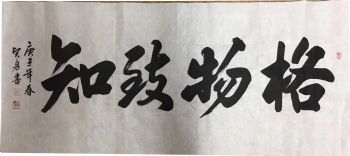 格物致知
庚子年春